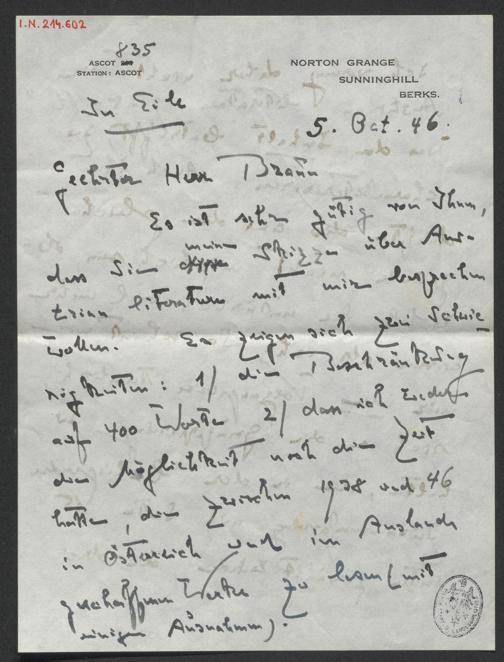 I.N. 214.602
835
ASCOT
STATION: ASCOT
NORTON GRANGE
SUNNINGHILL
BERKS.
In Eile
5. Oct. 46.
Geehrter Herr Braun
Es ist sehr gütig von Ihnen,
dass Sie meine Skizze über Aus-
trian literature mit mir besprechen
wollen. Es zeigen sich zwei Schwie-
rigkeiten: 1/ die Beschränkung
auf 400 Worte 2/ dass ich weder
die Möglichkeit noch die Zeit
hatte, die zwischen 1938 und 46
in Österreich und im Auslande
geschaffenen Werke zu lesen (mit
einigen Ausnahmen).